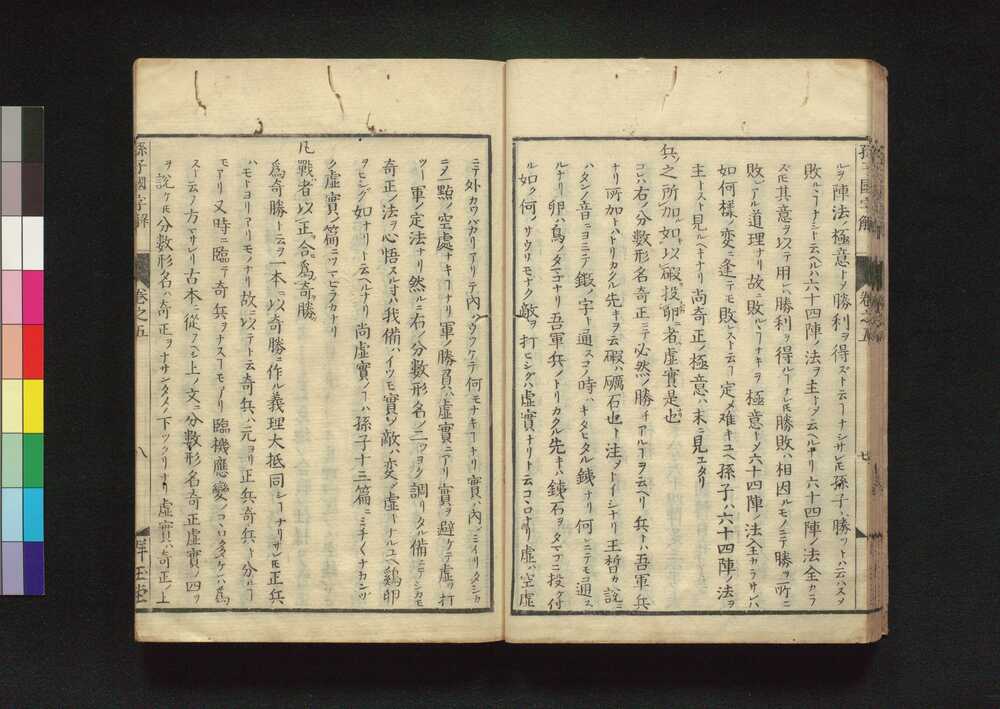 孫子國字解 卷之五 七
レヲ陣法ノ極意トメ勝利ヲ得ズト云ヿナシサレ𪜈孫子ハ勝ツトハ云ハスメ
敗ル丶ヿナシト云ヘルハ六十四陣ノ法ヲ主トメ云ヘルナリ六十四陣ノ法全カラ
ズ𪜈其意ヲ以テ用レハ勝利ヲ得ルヿナレ𪜈勝敗ハ相因ルモノニテ勝ヲ所ニ
敗レアル道理ナリ故ニ敗ル丶ヿナキヲ極意トメ六十四陣ノ法全カラサレハ
如何樣ノ變ニ逢テモ敗レスト云ヿ定メ難キユヘ孫子ハ六十四陣ノ法ヲ
主トスト見ルヘキナリ尚奇正ノ極意ハ末ニ見ユタリ
兵之所加如以碬投卵者虚實是也
コレハ右ノ分數形名奇正ニテ必然ノ勝チアルヿヲ云ヘリ兵トハ吾軍兵
ナリ所加トハトリカクル先キヲ云碬ハ礪石也ト注メトイシナリ王晳カ說ニ
ハタンノ音ニヨミテ鍛ノ字ト通スコノ時ハキタヒタル鉄ナリ何レニテモ通ス
ルナリ卵ハ鳥ノタマゴナリ吾軍兵ノトリカクル先キハ鉄石ヲタマゴニ投ケ付
ル如ク何ノサウリモナク敵ヲ打ヒシグハ虚實ナリト云コヽロナリ虚ハ空虚
ニテ外カワバカリアリテ內ハウツケテ何モナキヿナリ實ハ內ノミイリタシカ
ニメ一點ノ空處ナキヿナリ軍ノ勝負ハ虚實ニアリ實ヲ避ケテ虚ヲ打
ツヿ軍ノ定法ナリ然ルニ右ノ分數形名ノ二ツヨク調リタル備ニテシカモ
奇正ノ法ヲ心悟スル寸ハ我備ハイツモ實メ敵ハ変メ虚トナルユヘ鷄卵
ヲヒシグ如ナリト云ヘルナリ尚虚實ノヿハ孫子十三篇ニミチ〱ナカンヅ
ク虚實ノ篇ニツマビラカナリ
凡戰者以正合爲奇勝
爲奇勝ト云ヲ一本ニハ以奇勝ニ作ル義理大抵同シヿナリサレ𪜈正兵
ハモトヨリアリモノナリ故ニ以テト云奇兵ハ元ヨリ正兵奇兵ト分ルヽヿ
モアリ又時ニ臨テ奇兵ヲナスヿモアリ臨機應變ノコヽロタスケレハ爲
スト云ノ方マサレリ古本ニ從フヘシ上ノ文ニ分數形名奇正虚實ノ四ヲ
說ケ𪜈分數形名ハ奇正ヲナサンタメノ下ツクリナリ虚實ハ奇正ノ上
孫子國字解 卷之五 八